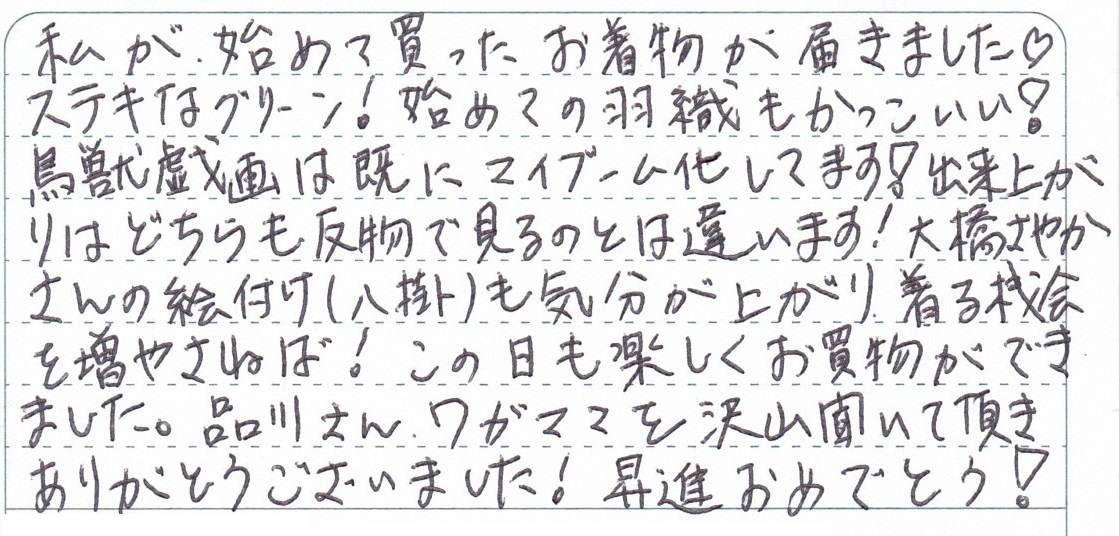 私が、始めて買ったお着物が届きました♡
ステキなグリーン!始めての羽織もかっこいい!
鳥獣戯画は既にマイブーム化してます!出来上が
りはどちらも反物で見るのとは違います!大橋さやか
さんの絵付け(八掛)も気分が上がり、着る機会
を増やさねば!この日も楽しくお買物ができ
ました。品川さん、ワガママを沢山聞いて頂き
ありがとうございました!昇進おめでとう!